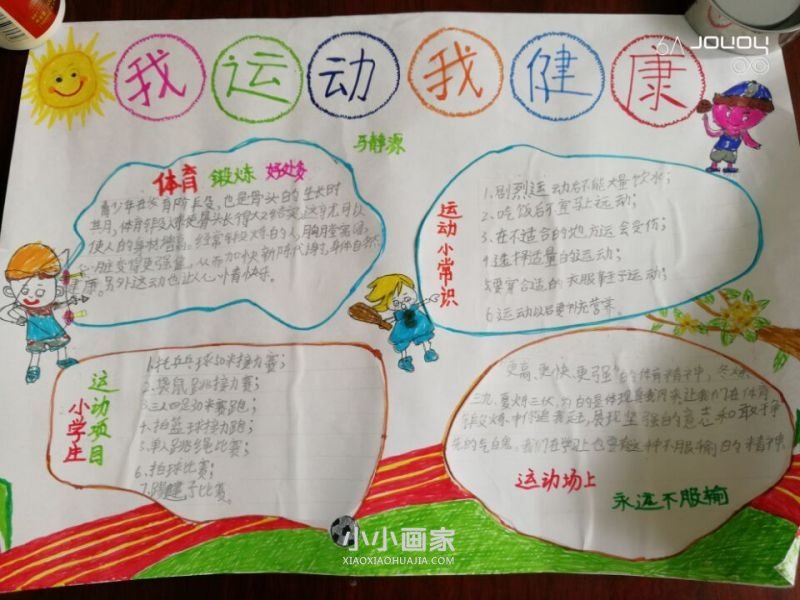 我运动我健康
马静源
体育 锻炼 好处多
青少年在长身阶段，也是骨头的生长时
其月，体育锻炼使骨头长得又粗又结实，这样就可以
使人的身材增高。经常锻炼的人，胸膛宽阔，
心脏变得更强壮，从而加快新陈代谢，身体自然
健康。另外运动也让人心情愉快。
运动小常识
1.剧烈运动后不能大量饮水；
2.吃饭后不宜马上运动；
3.在不适合的地方运会受伤；
4.选择适量的运动；
5.要穿合适的衣服鞋子运动；
6.运动以后要补充营养。
小学生
运动项目
1.托乒乓球50米接力赛；
2.袋鼠跳接力赛；
3.三人四足50米赛跑；
4.拍篮球接力跑；
5.单人跳绳比赛；
6.拍球比赛；
7.踢毽子比赛。
"更高、更快、更强"的体育精神中，冬炼
三九、夏炼三伏，为的是体现
锻炼中你追我赶，展现坚强的意志和敢于争
先的气自。我们在学习上也要有这种不服输的精神。
运动场上
永远不服输
小小画家
XIAOXIAOHUAJIA.COM